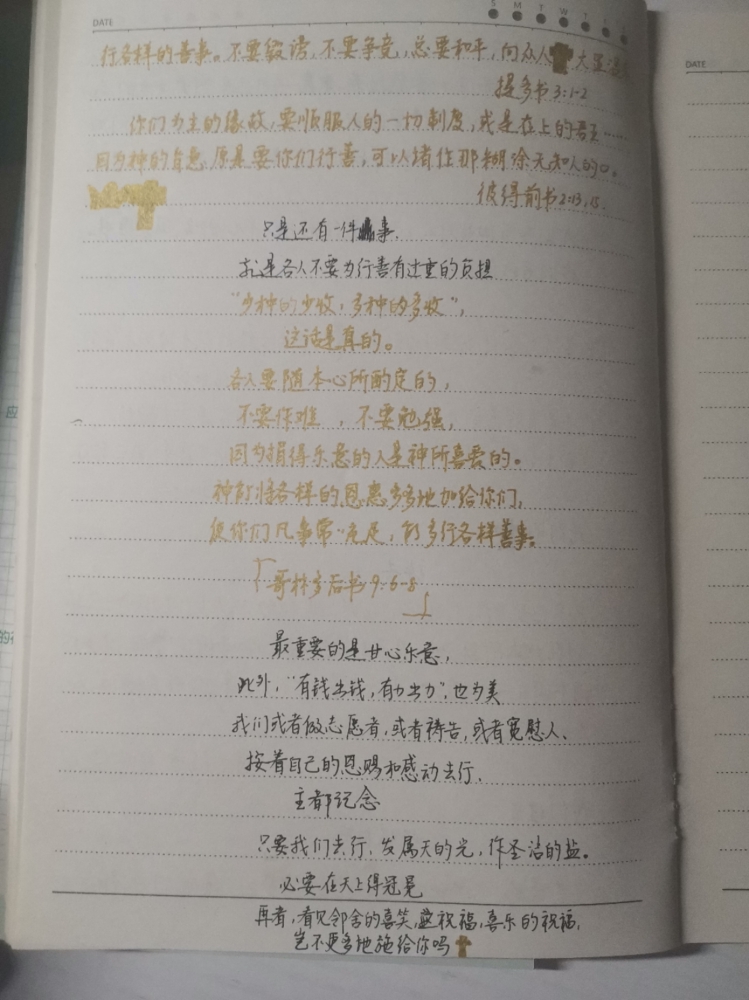 DATE
S M T W T F S
DATE
行各样的善事。不要毁谤,不要争竞,总要和平,向众人大显温
提多书3:1-2
你们为主的缘故,要顺服人的一切制度,或是在上的君王……
因为神的旨意原是要你们行善,可以堵住那糊涂无知人的口。
彼得前书2:13,15.
只是还有一件事.
就是各人不要为行善有过重的负担
“少种的少收,多种的多收”,
这话是真的。
各人要随本心所酌定的,
不要作难,不要勉强,
因为捐得乐意的人是神所喜爱的。
神能将各样的恩惠多多地加给你们,
使你们凡事常常充足,能多行各样善事。
「哥林多后书9:6-8」
最重要的是甘心乐意,
此外,“有钱出钱,有力出力”,也为美
我们或者做志愿者,或者祷告,或者宽慰人、
按着自己的恩赐和感动去行.
主都记念
只要我们去行,发属天的光,作圣洁的盐。
必要在天上得冠冕
再者,看见邻舍的喜笑,祝福,喜乐的祝福,
岂不更多地施给你吗
应
的